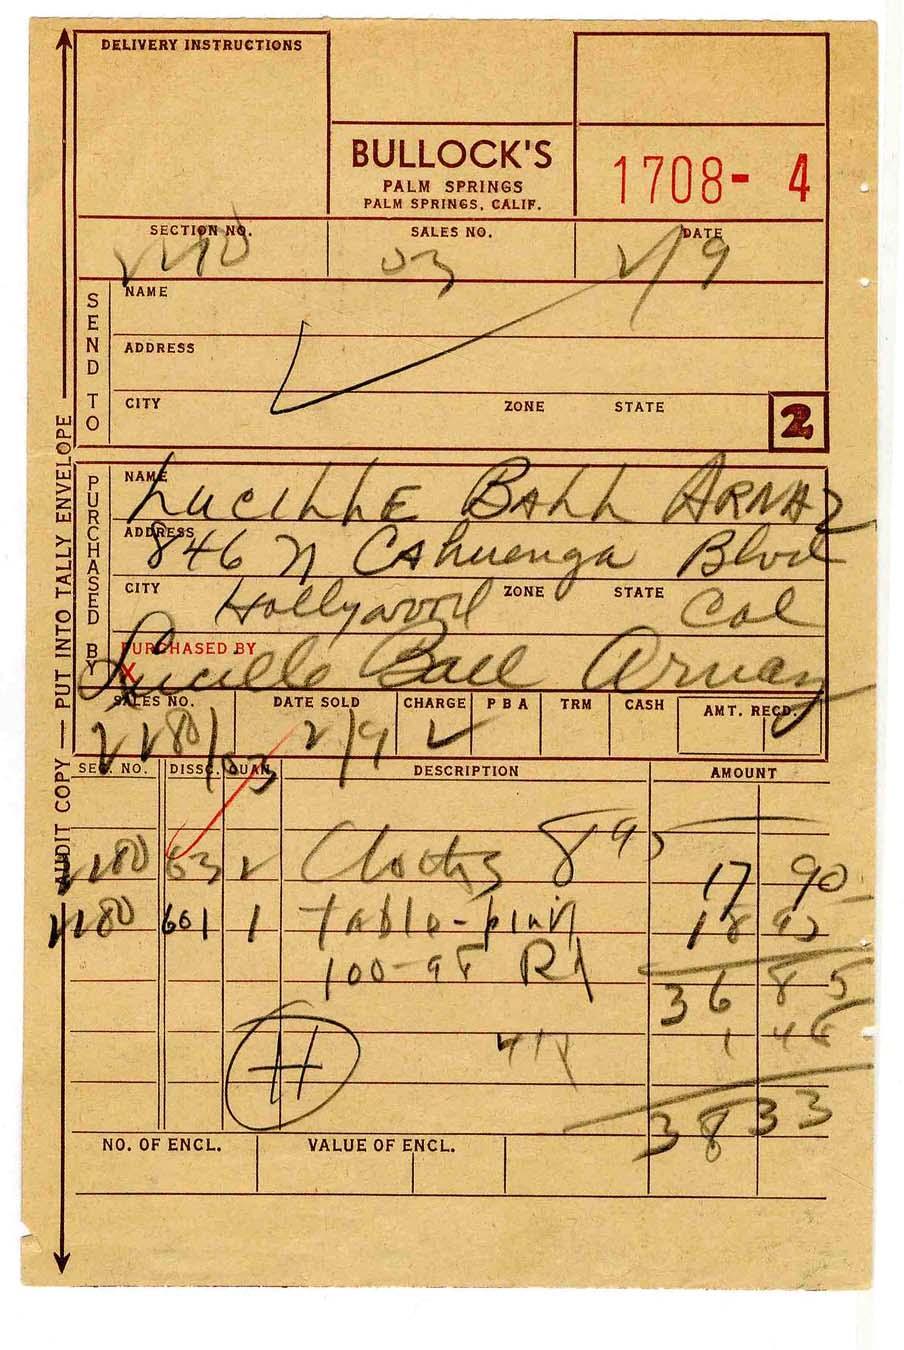 DELIVERY INSTRUCTIONS
BULLOCK'S
PALM SPRINGS
PALM SPRINGS, CALIF.
1708- 4
SECTION NO. SALES NO. DATE
2280 03 2/9
SEND TO
NAME
ADDRESS
CITY ZONE STATE
2
PURCHASED BY
NAME LUCILLE BALL ARNAZ
ADDRESS 846 N Cahuenga Blvd
CITY Hollywood ZONE STATE Cal
PURCHASED BY
X Lucille Ball Arnaz
SALES NO. DATE SOLD CHARGE P B A TRM CASH AMT. RECD.
2280/03 2/9
SEC. NO. DISSC. QUAN. DESCRIPTION AMOUNT
2280 63 2 8 95 17 90
2280 601 1 table-plain 18 95
100-98 36 85
1 48
H
38 33
NO. OF ENCL. VALUE OF ENCL.
AUDIT COPY — PUT INTO TALLY ENVELOPE